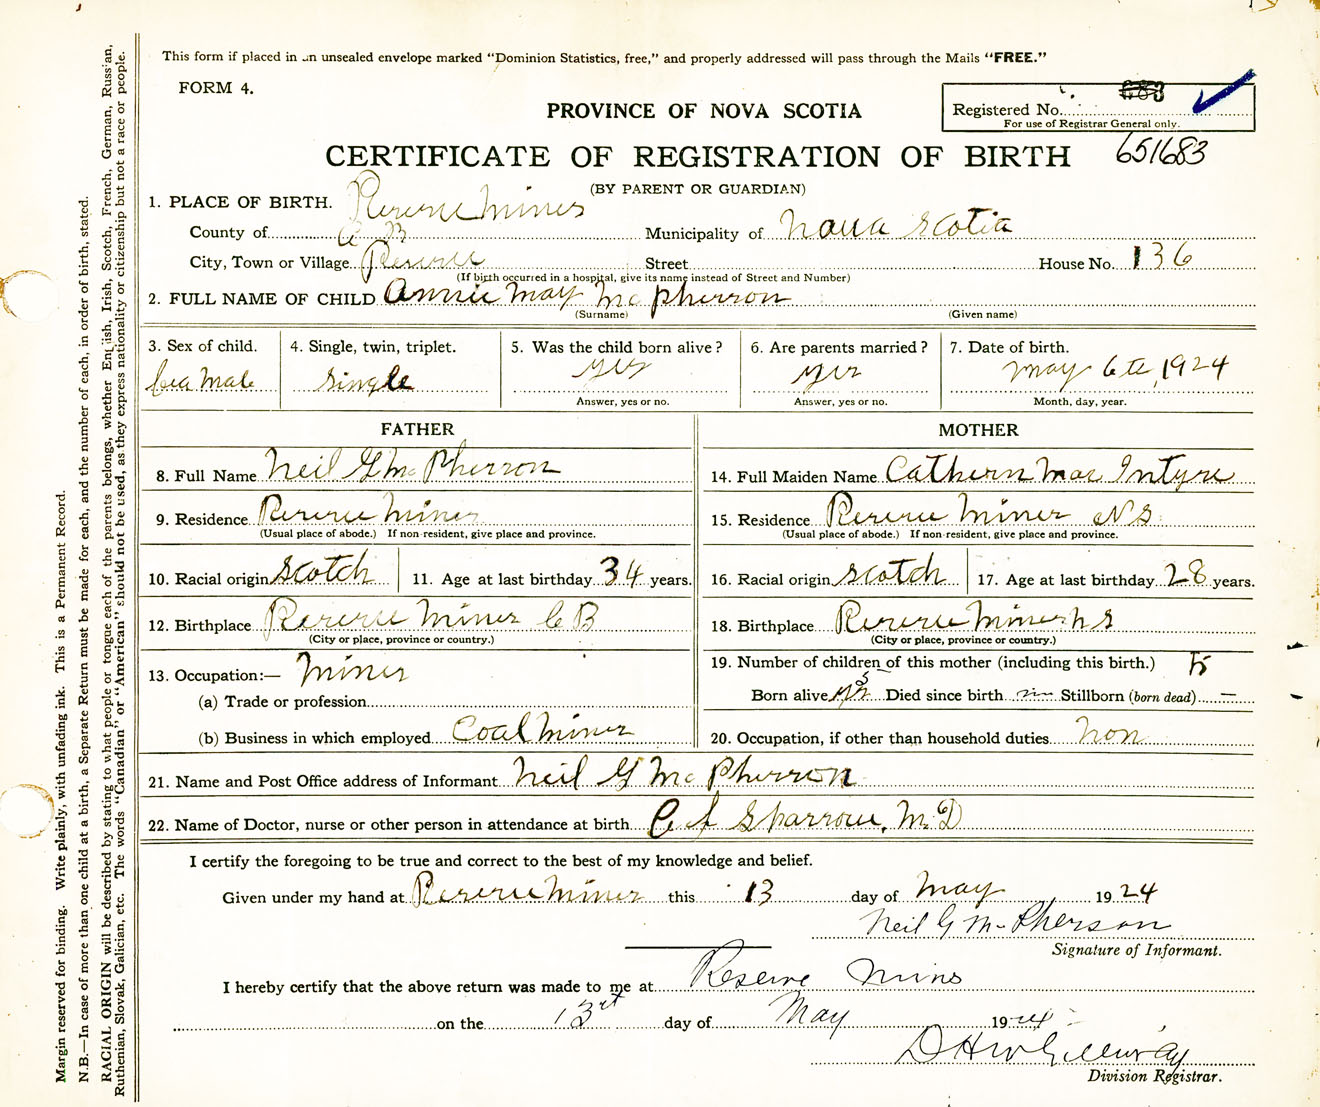 This form if placed in an unsealed envelope marked “Dominion Statistics, free,” and properly addressed will pass through the Mails “FREE.”
FORM 4.
683
Registered No.
For use of Registrar General only.
PROVINCE OF NOVA SCOTIA
CERTIFICATE OF REGISTRATION OF BIRTH 651683
(BY PARENT OR GUARDIAN)
1. PLACE OF BIRTH. Reserve Mines
County of C B Municipality of Nova Scotia
City, Town or Village Reserve Street House No. 136
(If birth occurred in a hospital, give its name instead of Street and Number)
2. FULL NAME OF CHILD Annie May McPherson
(Surname) (Given name)
3. Sex of child. 4. Single, twin, triplet. 5. Was the child born alive? 6. Are parents married? 7. Date of birth.
Single yes yes May 6th, 1924
Answer, yes or no. Answer, yes or no. Month, day, year.
FATHER MOTHER
8. Full Name Neil G McPherson 14. Full Maiden Name Cathern Mac Intyre
9. Residence Reserve Mines 15. Residence Reserve Mines N S
(Usual place of abode.) If non-resident, give place and province. (Usual place of abode.) If non-resident, give place and province.
10. Racial origin Scotch 11. Age at last birthday 34 years. 16. Racial origin Scotch 17. Age at last birthday 28 years.
12. Birthplace Reserve Mines C B 18. Birthplace Reserve Mines N S
(City or place, province or country.) (City or place, province or country.)
13. Occupation:— Miner 19. Number of children of this mother (including this birth.) 5
(a) Trade or profession Born alive 5 yes Died since birth — Stillborn (born dead) —
(b) Business in which employed Coal Miner 20. Occupation, if other than household duties non
21. Name and Post Office address of Informant Neil G McPherson
22. Name of Doctor, nurse or other person in attendance at birth Sparrow, M.D
I certify the foregoing to be true and correct to the best of my knowledge and belief.
Given under my hand at Reserve Mines this 13 day of May 1924
Neil G McPherson
Signature of Informant.
I hereby certify that the above return was made to me at Reserve Mins
on the 13rd day of May 1924
Division Registrar.
Margin reserved for binding. Write plainly, with unfading ink. This is a Permanent Record.
N.B.—In case of more than one child at a birth, a Separate Return must be made for each, and the number of each, in order of birth, stated.
RACIAL ORIGIN will be described by stating to what people or tongue each of the parents belongs, whether English, Irish, Scotch, French, German, Russian,
Ruthenian, Slovak, Galician, etc. The words “Canadian” or “American” should not be used, as they express nationality or citizenship but not a race or people.